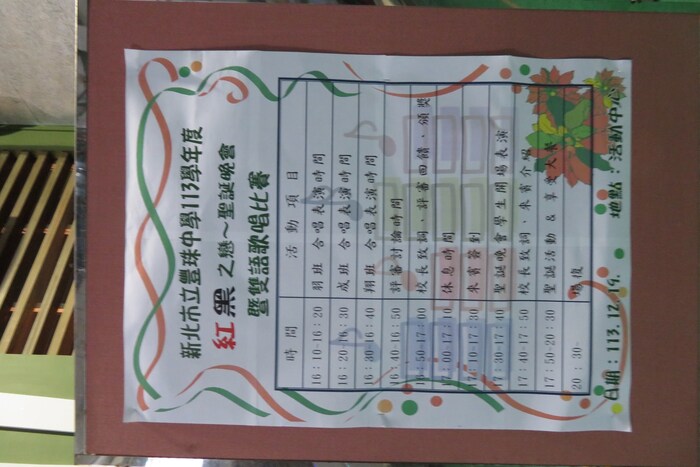 新北市立豐珠中學113學年度
紅黑之戀~聖誕晚會
暨雙語歌唱比賽
時間 活動項目
16:10-16:20 朋班 合唱表演時間
16:20-16:30 成班 合唱表演時間
16:30-16:40 翔班 合唱表演時間
16:40-16:50 評審討論時間
16:50-17:00 校長致詞、評審回饋、頒獎
17:00-17:10 休息時間
17:10-17:30 來賓簽到
17:30-17:40 聖誕晚會學生開場表演
17:40-17:50 校長致詞、來賓介紹
17:50-20:30 聖誕活動 & 享受大餐
20:30- 場復
日期:113.12.19. 地點:活動中心